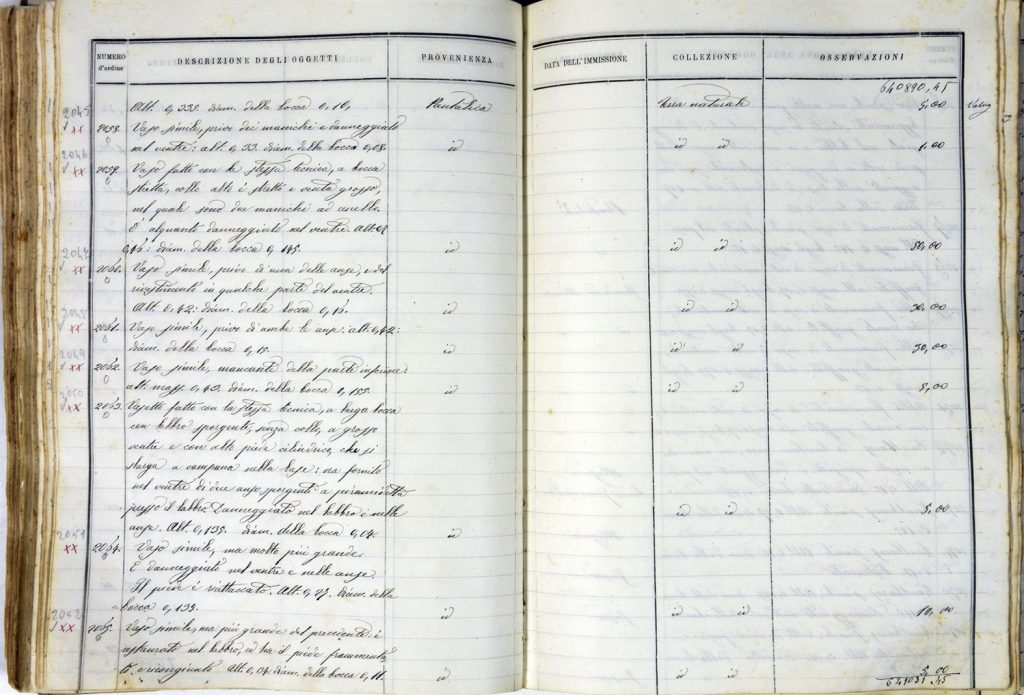 NUMERO d'ordine DESCRIZIONE DEGLI OGGETTI PROVENIENZA DATA DELL'IMMISSIONE COLLEZIONE OSSERVAZIONI
640890,45
2045 Alt. 0,335. diam. della bocca 0,10, Pantalica Terra naturale 5,00
xx 2058. Vaso simile, privo dei manichi e danneggiato
nel ventre: alt. 0,33. diam. della bocca 0,08. id id id 1.00
2046
xx 2059. Vaso fatto con la stessa tecnica, a bocca
stretta, collo alto e stretto e ventre grosso,
nel quale sono due manichi ad anello.
È alquanto danneggiato nel ventre. Alt.
0,46: diam. della bocca 0,145. id id id 50,00
2047
xx 2060. Vaso simile, privo di una delle anse, e del
rivestimento in qualche parte del ventre.
Alt. 0,42: diam. della bocca 0,15. id id id 30,00
2048
xx 2061. Vaso simile, privo di ambe le anse: alt. 0,42:
diam. della bocca 0,15. id id id 30,00
2049
xx 2062. Vaso simile, mancante della parte inferiore
alt. mass. 0,43. diam. della bocca 0,155. id id id 5,00
2050
xx 2063. Vasetto fatto con la stessa tecnica, a larga bocca
con labbro sporgente, senza collo, a grosso
ventre e con alto piede cilindrico, che si
slarga a campana nella base: era fornito
nel ventre di due anse sporgenti a piramidetta
presso il labbro. Danneggiato nel labbro e nelle
anse. Alt. 0,135. diam. della bocca 0,04. id id id 5,00
2051
xx 2064. Vaso simile, ma molto più grande.
È danneggiato nel ventre e nelle anse.
Il piede è riattaccato. Alt. 0,27. diam. della
bocca 0,135. id id id 10,00
2052
xx 2065. Vaso simile, ma più grande del precedente: è
restaurato nel labbro, ed ha il piede frammenta-
to e ricongiunto. Alt. diam. della bocca 0,11. id id id